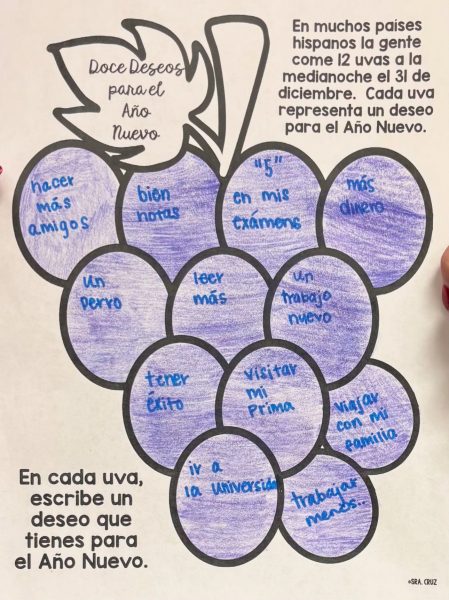 Doce Deseos
para el
Año
Nuevo
En muchos países
hispanos la gente
come 12 uvas a la
medianoche el 31 de
diciembre. Cada uva
representa un deseo
para el Año Nuevo.
hacer
más
amigos
bien
notas
"5"
en mis
exámens
más
dinero
un
perro
leer
más
un
trabajo
nuevo
tener
éxito
visitar
mi
prima
viajar
con mi
familia
ir a
la universidad
trabajar
menos..
En cada uva,
escribe un
deseo que
tienes para
el Año Nuevo.
©SRA. CRUZ